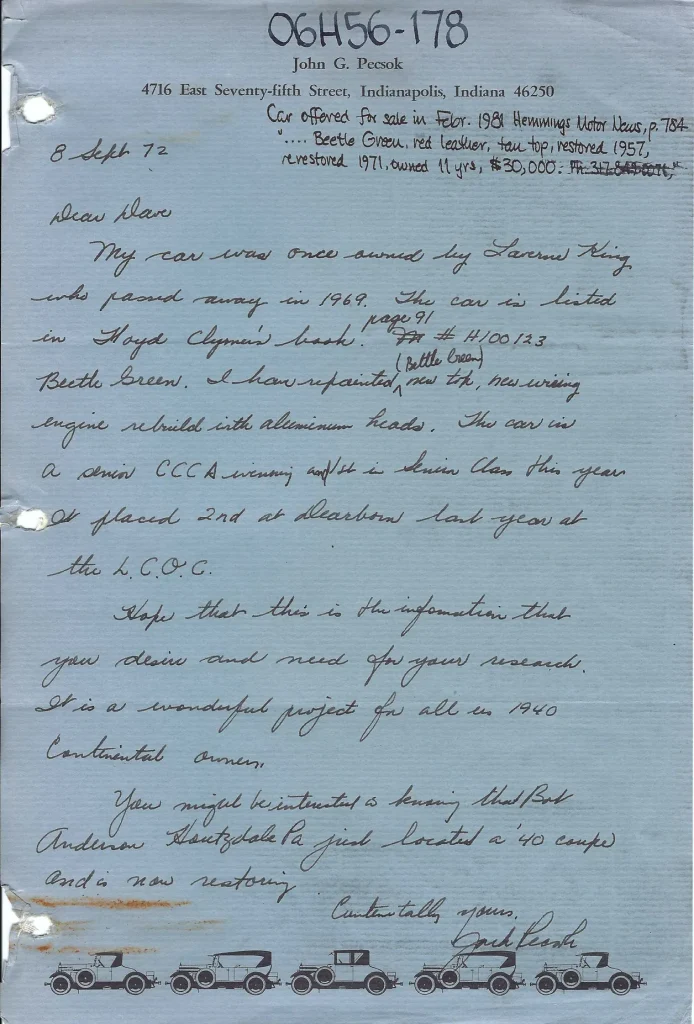 06H56-178
John G. Pecsok
4716 East Seventy-fifth Street, Indianapolis, Indiana 46250
Car offered for sale in Febr. 1981 Hemmings Motor News, p. 784
".... Beetle Green, red leather, tan top, restored 1957,
rerestored 1971, owned 11 yrs, $30,000.
8 Sept 72
Dear Dave
My car was once owned by Laverne King
who passed away in 1969. The car is listed
page 91
in Floyd Clymer's book. # H100123
(Bettle Green)
Beetle Green. I have repainted, new top, new wiring
engine rebuild with aluminum heads. The car is
a senior CCCA winning and 1st in Senior Class this year
It placed 2nd at Dearborn last year at
the L.C.O.C.
Hope that this is the information that
you desire and need for your research.
It is a wonderful project for all us 1940
Continental owners.
You might be interested in knowing that Bob
Anderson Houtzdale Pa just located a '40 coupe
and is now restoring
Continentally yours,
Jack Pecsok